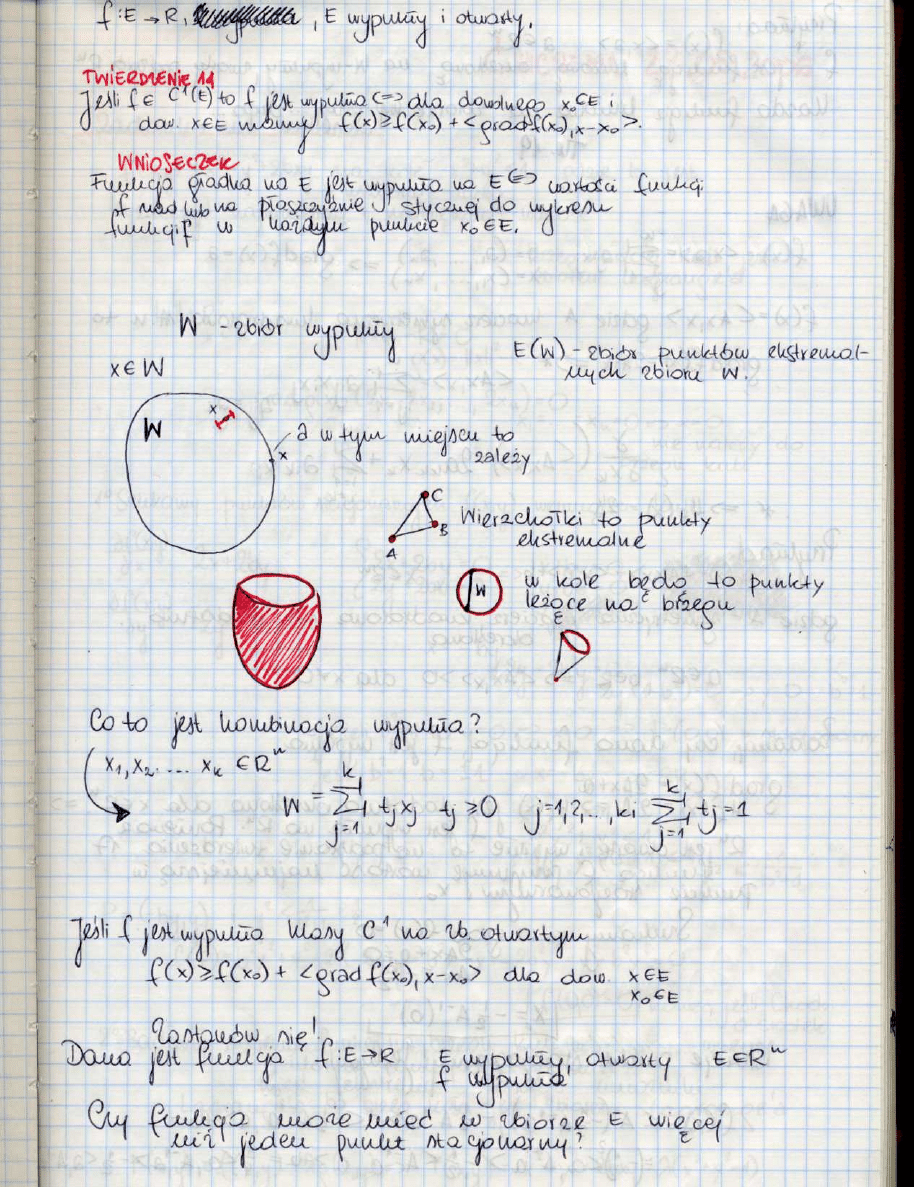 f: E → R, E wypukły i otwarty.
TWIERDZENIE 11
Jeśli f ∈ C¹(E) to f jest wypukła <=> dla dowolnego x₀∈E i
dow. x∈E mamy f(x) ≥ f(x₀) + <grad f(x₀), x-x₀>.
WNIOSECZEK
Funkcja gładka na E jest wypukła na E <=> wartości funkcji
f nad lub na płaszczyźnie stycznej do wykresu
funkcji f w każdym punkcie x₀∈E.
W - zbiór wypukły
E(W) - zbiór punktów ekstremal-
nych zbioru W.
x∈W
x
W
a w tym miejscu to
zależy
x
C
B
A
Wierzchołki to punkty
ekstremalne
W
w kole będą to punkty
leżące na brzegu
E
Co to jest kombinacja wypukła?
x₁, x₂ .... xₖ ∈ Rⁿ
W = k∑j=1 tj xj tj ≥ 0 j=1,2,...,k, k∑j=1 tj = 1
Jeśli f jest wypukła klasy C¹ na zb. otwartym
f(x) ≥ f(x₀) + <grad f(x₀), x-x₀> dla dow. x∈E
x₀∈E
Zastanów się!
Dana jest funkcja f: E→R E wypukły, otwarty E∈Rⁿ
f wypukła
Czy funkcja może mieć w zbiorze E więcej
niż jeden punkt stacjonarny?